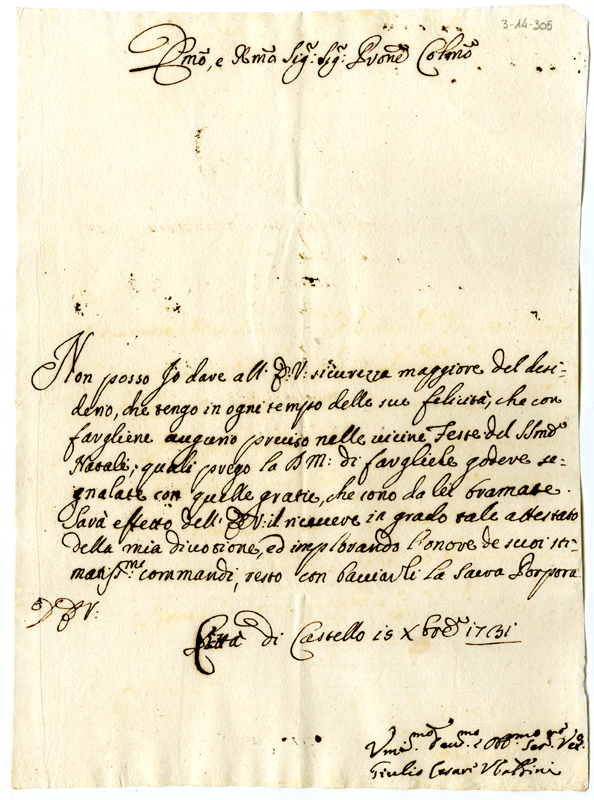 3-14-306
Emo, e Rmo Sig.r Sig.r Prone Colmo
Non posso Io dare all' E: V: sicurezza maggiore del desi-
derio, che tengo in ogni tempo delle sue felicità, che con
fargliene augurio preciso nelle vicine Feste del SSmo
Natale; quali prego la D M: di fargliele godere se-
gnalate con quelle gratie, che sono da lei bramate.
Sarà effetto dell' E V: il ricevere in grado tale attestato
della mia divozione, ed implorando l'onore de suoi sti-
matis.mi commandi, resto con bacciarli la Sacra Porpora
D E V:
Città di Castello 15 Xbre 1731
Vmi.mo Deu.mo e Obb.mo Ser.re Ver.
Giulio Cesare